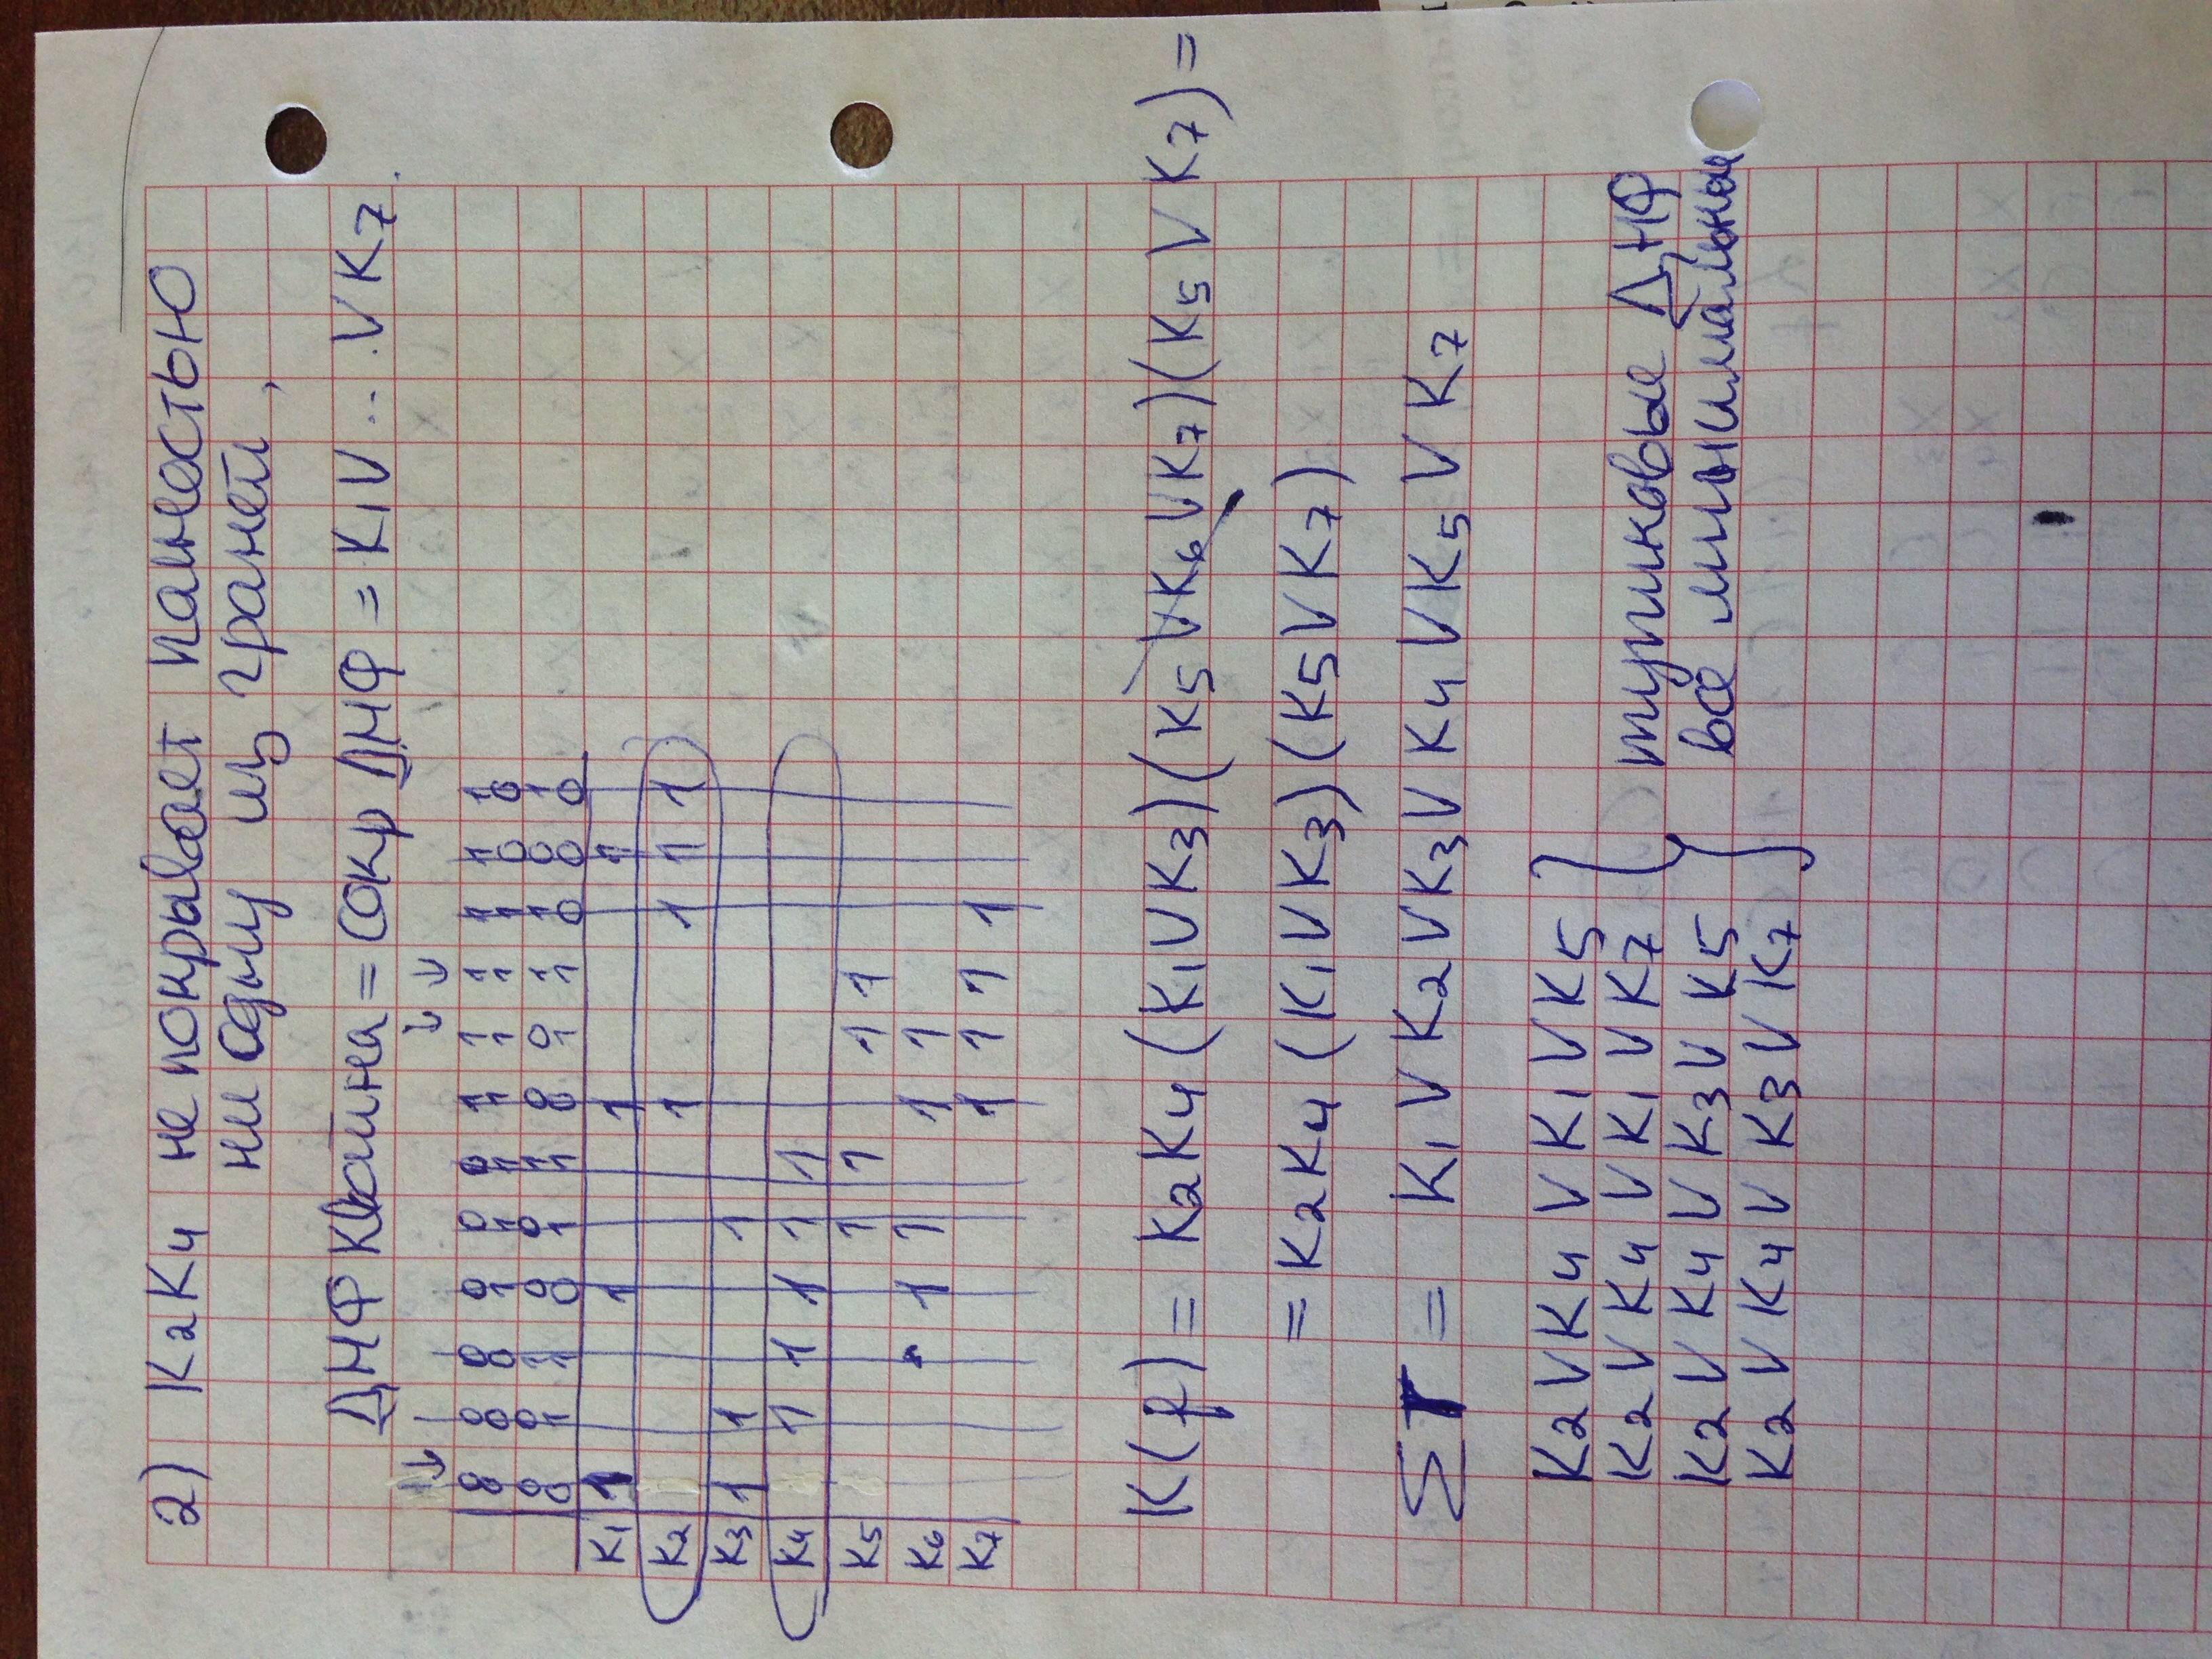 2) K2K4 не покрывает полностью
ни одну из граней,
ДНФ Квайна = сокр ДНФ = K1V...VK7.
↓ ↓ ↓
0 0 0 0 0 0 1 1 1 1 1 1
0 0 0 1 1 1 1 1 1 1 0 0
0 0 1 0 0 1 0 0 1 1 0 1
0 1 1 0 1 1 0 1 1 0 0 0
K1 1 1 1 1
K2 1 1 1 1
K3 1 1 1
K4 1 1 1 1 1 1
K5 1 1 1 1
K6 1 1 1 1
K7 1 1 1 1
K(f) = K2K4(K1VK3)(K5VK6VK7)(K5VK7) =
= K2K4(K1VK3)(K5VK7)
ΣT = K1VK2VK3VK4VK5VK7
K2VK4VK1VK5
K2VK4VK1VK7
K2VK4VK3VK5
K2VK4VK3VK7
тупиковые ДНФ
все минимальные